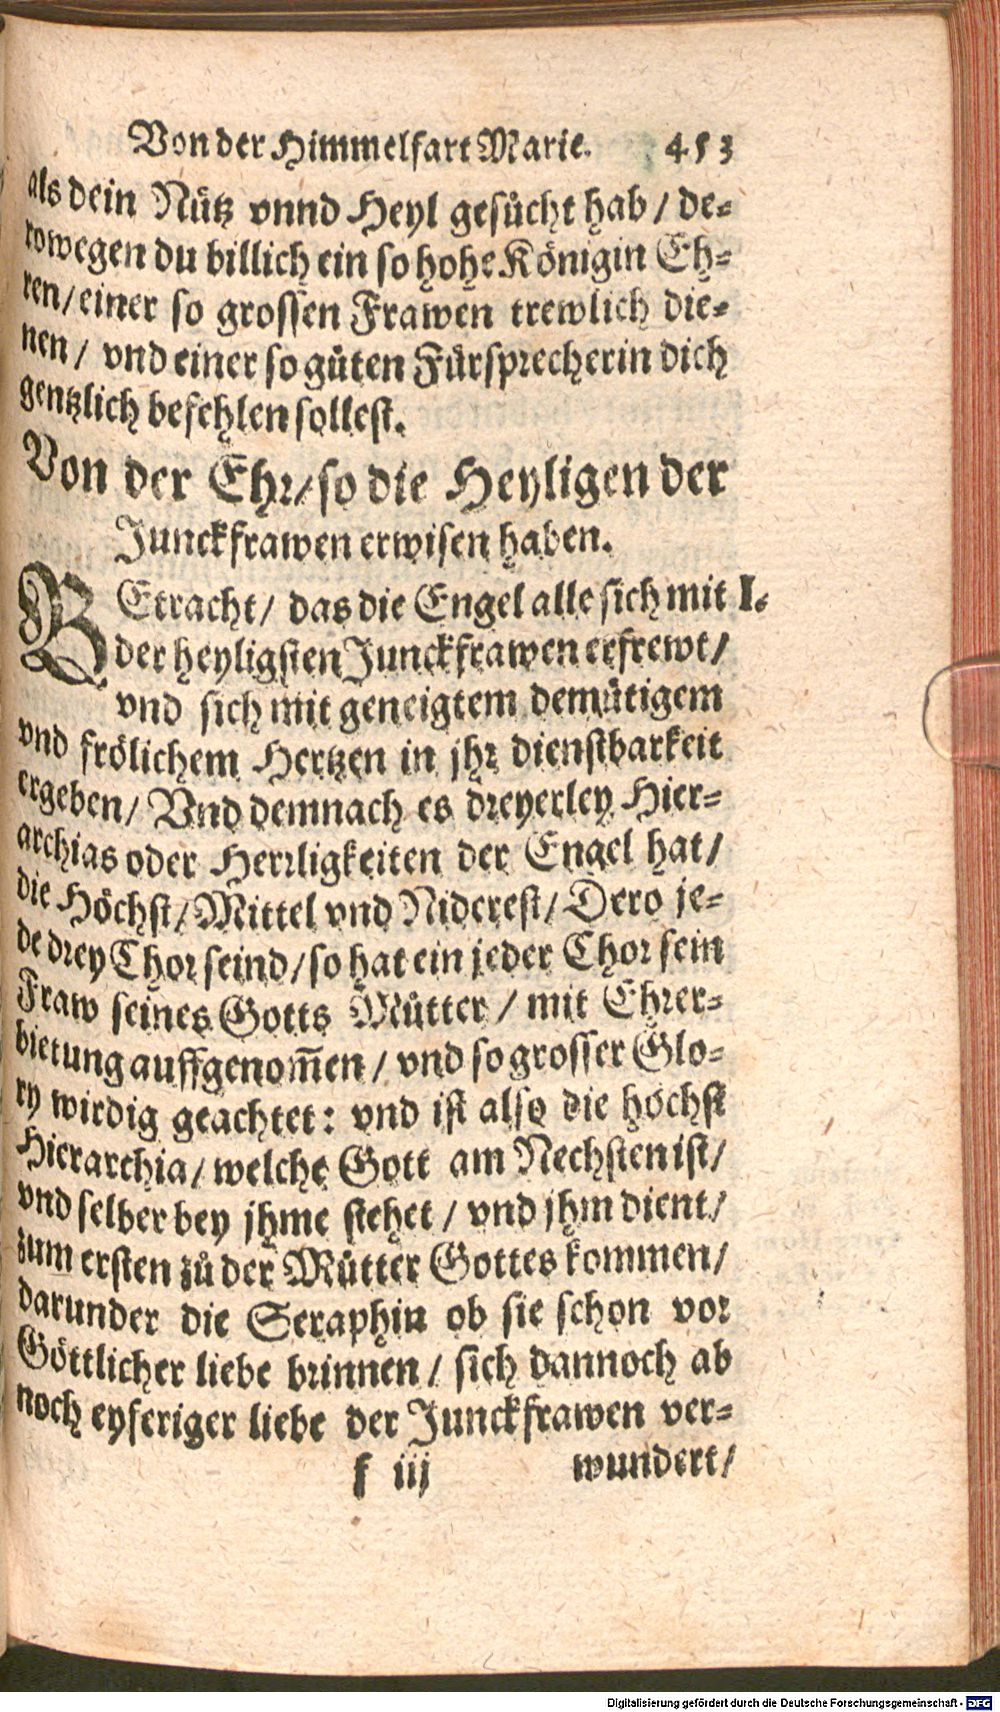 Von der Himmelfart Marie. 453
als dein Nütz vnnd Heyl gesücht hab / de-
rowegen du billich ein so hohe Königin Eh-
ren / einer so grossen Frawen trewlich die-
nen / vnd einer so güten Fürsprecherin dich
gentzlich befehlen sollest.
Von der Ehr / so die Heyligen der
Junckfrawen erwisen haben.
BEtracht / das die Engel alle sich mit I.
der heyligsten Junckfrawen erfrewt /
vnd sich mit geneigtem demütigem
vnd frölichem Hertzen in jhr dienstbarkeit
ergeben / Vnd demnach es dreyerley Hier-
archias oder Herrligkeiten der Engel hat /
die Höchst / Mittel vnd Niderest / Dero je-
de drey Chor seind / so hat ein jeder Chor sein
Fraw seines Gotts Mütter / mit Ehrer-
bietung auffgenom̃en / vnd so grosser Glo-
ry wirdig geachtet: vnd ist also die höchst
Hierarchia / welche Gott am Nechsten ist /
vnd selber bey jhme stehet / vnd jhm dient /
zum ersten zů der Mütter Gottes kommen /
darunder die Seraphin ob sie schon vor
Göttlicher liebe brinnen / sich dannoch ab
noch eyferiger liebe der Junckfrawen ver-
f iij wundert /
Digitalisierung gefördert durch die Deutsche Forschungsgemeinschaft - DFG